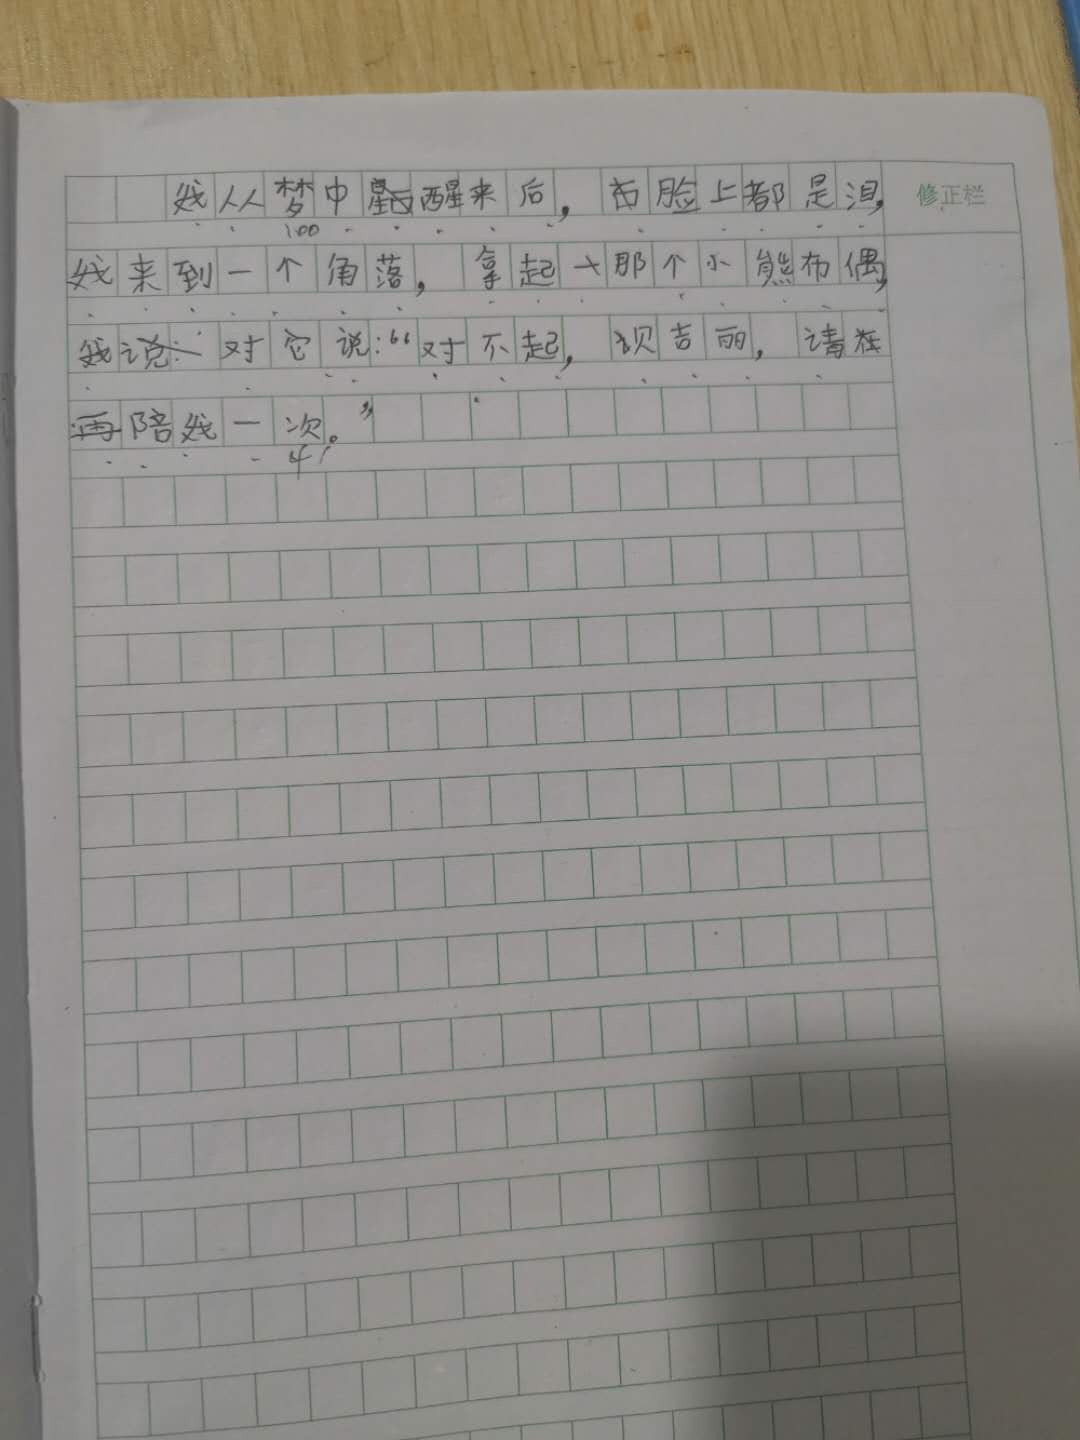 我从梦中醒来后，古脸上都是泪， 修正栏
100
我来到一个角落，拿起那个小熊布偶，
我对它说：“对不起，贝吉丽，请在
陪我一次。”
41